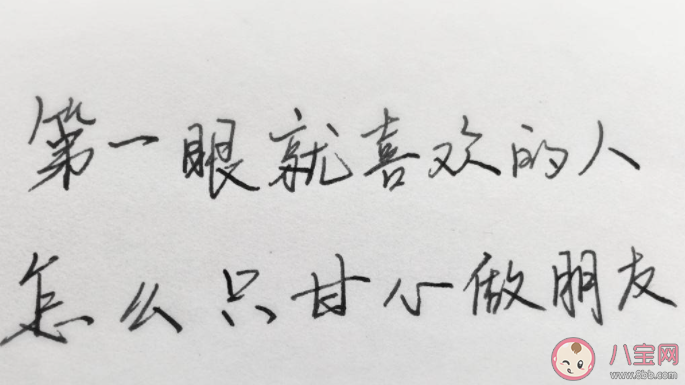 第一眼就喜欢的人
怎么只甘心做朋友
八宝网
www.8bb.com